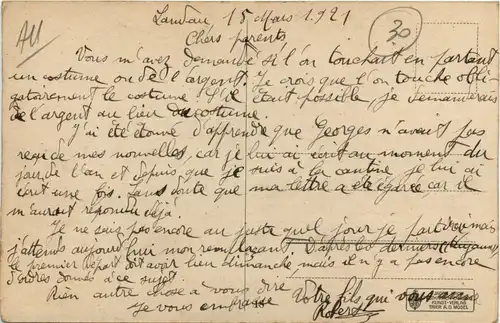 All
30
Landau, 15 Mars 1921
Chers parents,
Vous m'avez demandé si l'on touchait en partant
un costume ou de l'argent. Je crois que l'on touche obli-
gatoirement le costume. S'il était possible, je demanderais
de l'argent au lieu du costume.
J'ai été étonné d'apprendre que Georges n'avait pas
reçu de mes nouvelles, car je lui ai écrit au moment du
jour de l'an et depuis que je suis à la cantine je lui ai
écrit une fois. Sans doute que ma lettre a été égarée car il
m'aurait répondu déjà.
Je ne sais pas encore au juste quel jour je partirai mais
j'attends aujourd'hui mon remplaçant. D'après les derniers
le premier départ doit avoir lieu dimanche mais il n'y a pas encore
d'ordres donnés à ce sujet.
Rien autre chose à vous dire
Votre fils qui vous aime
Je vous embrasse
Robert
KUNST-VERLAG
TRIER A. D. MOSEL